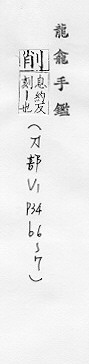 龍龕手鑑
削息約反刻削也
(刀部VI P34 b6~7)